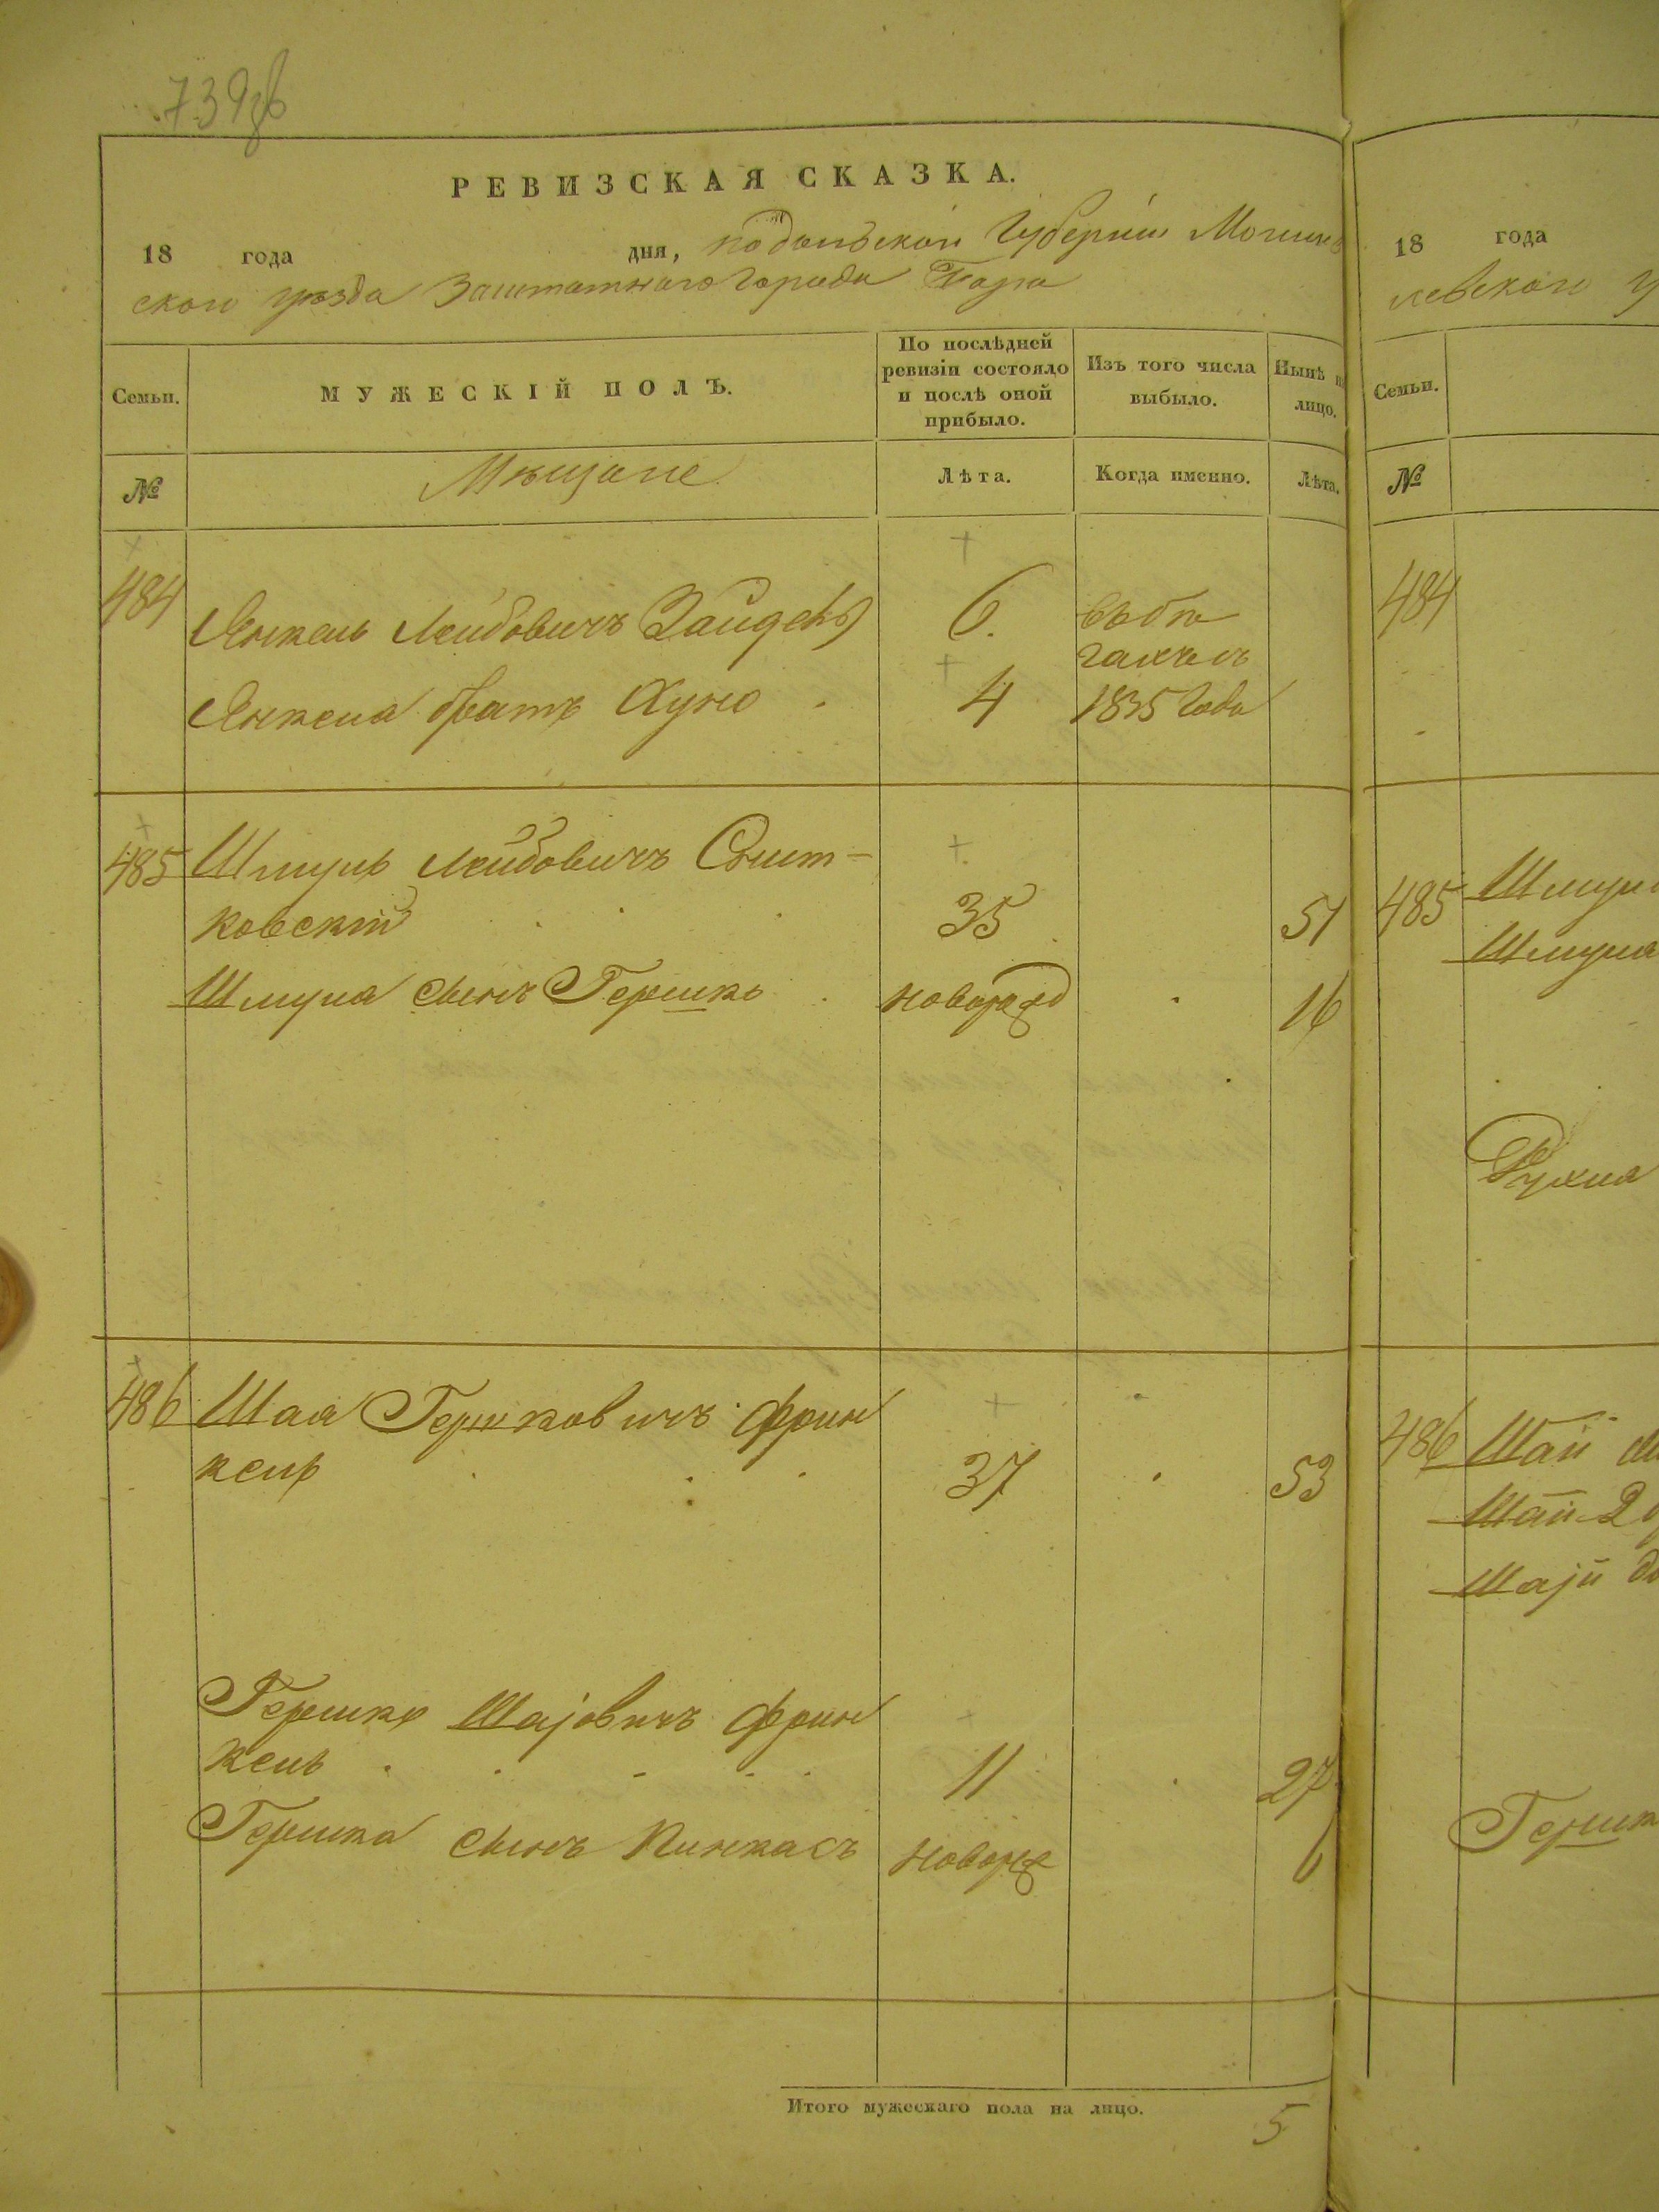 739об
РЕВИЗСКАЯ СКАЗКА.
18 года дня, подольской Губернiи Могилев
ской уѣзда Заштатнаго Города Бара
Семьи.
МУЖЕСКІЙ ПОЛЪ.
По послѣдней
ревизіи состояло
и послѣ оной
прибыло.
Изъ того числа
выбыло.
Нынѣ на
лицо.
№
Мѣщане
Лѣта.
Когда именно.
Лѣта.
484
Янкель Лейбовичъ 6.
Янкеля братъ Хуно 4 1835 Года
485 Шмуль Лейбовичъ Снит-
ковскій 35 51
Шмуля сынъ Гершко новорожд 16
486 Шая Гершковичъ Фрин
кель 37 53
Гершко Шаjовичъ Фрин
кель 11 27
Гершка сынъ Пинкасъ новорж 6
Итого мужескаго пола на лицо. 5
18 года
левской у
Семьи.
№
484
485 Шмул
Шмула
Рухля
486 Шаи
Шаи 2
Шаjи до
Гершк